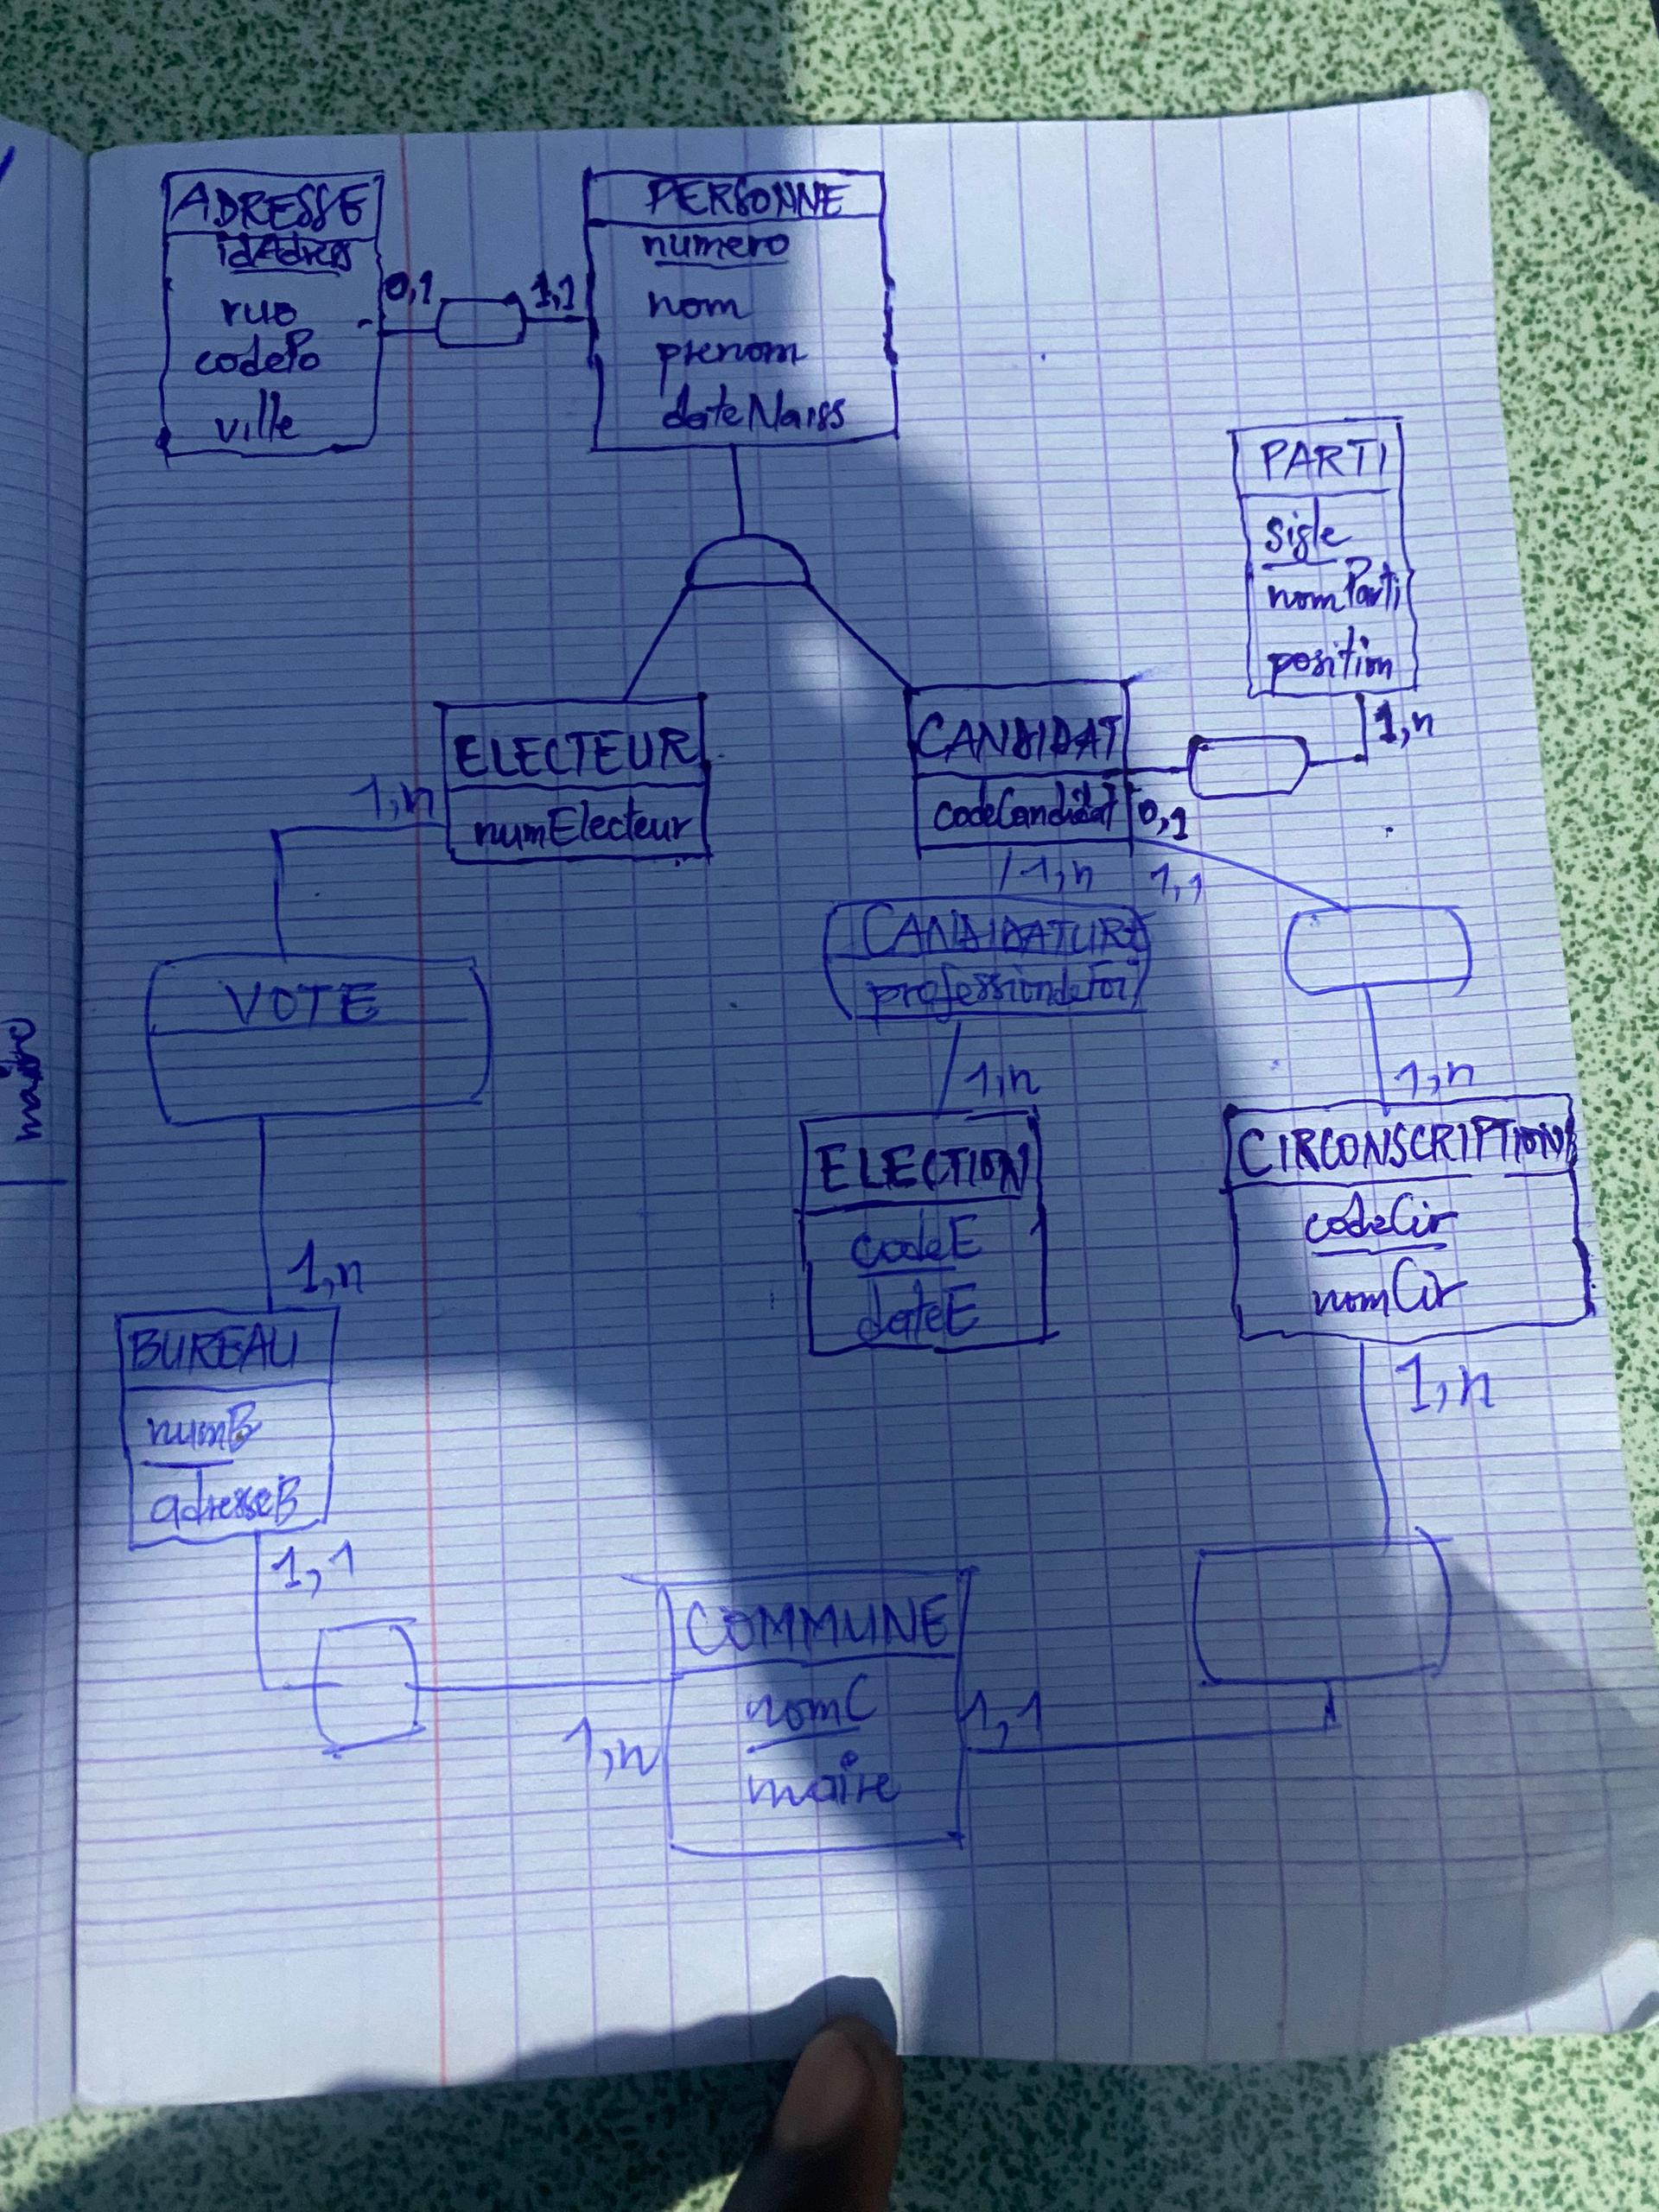 ADRESSE
idAdress
rue
codePo
ville
0,1
1,1
PERSONNE
numero
nom
prenom
dateNaiss
PARTI
sigle
nomParti
position
1,n
ELECTEUR
numElecteur
1,n
CANDIDAT
codeCandidat
0,1
1,n
1,1
CANDIDATURE
professiondeFoi
VOTE
1,n
1,n
ELECTION
codeE
dateE
CIRCONSCRIPTION
codeCir
nomCir
1,n
1,n
BUREAU
numB
adresseB
1,1
COMMUNE
nomC
maire
1,n
1,1
maire